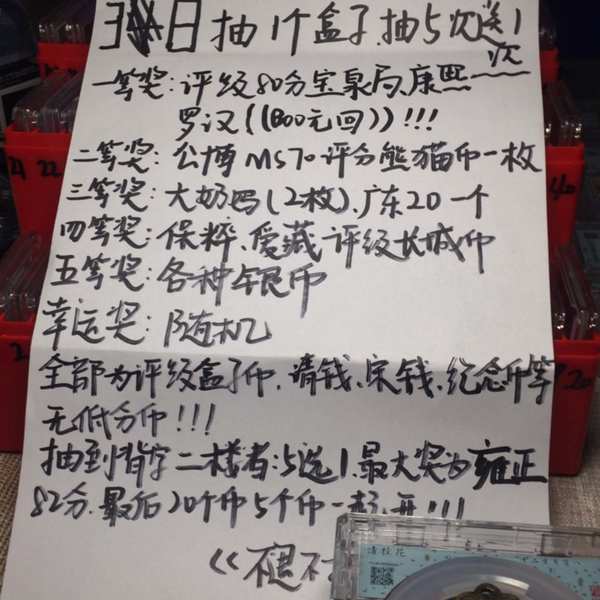 日抽1个盒子,抽5次送1次
一等奖:评级80分宝泉局,康熙
罗汉((1800元回))!!!
二等奖:公博MS70评分熊猫币一枚
三等奖:大奶妈(2枚),广东20一个
四等奖:保粹、爱藏评级长城币
五等奖:各种银币
幸运奖:随机
全部为评级盒子币,清钱、宋钱、纪念币等
无低分币!!!
抽到背字二样者:5选1,最大奖为雍正
82分,最后20个币5个币一起开!!!
22
20
清 枝花